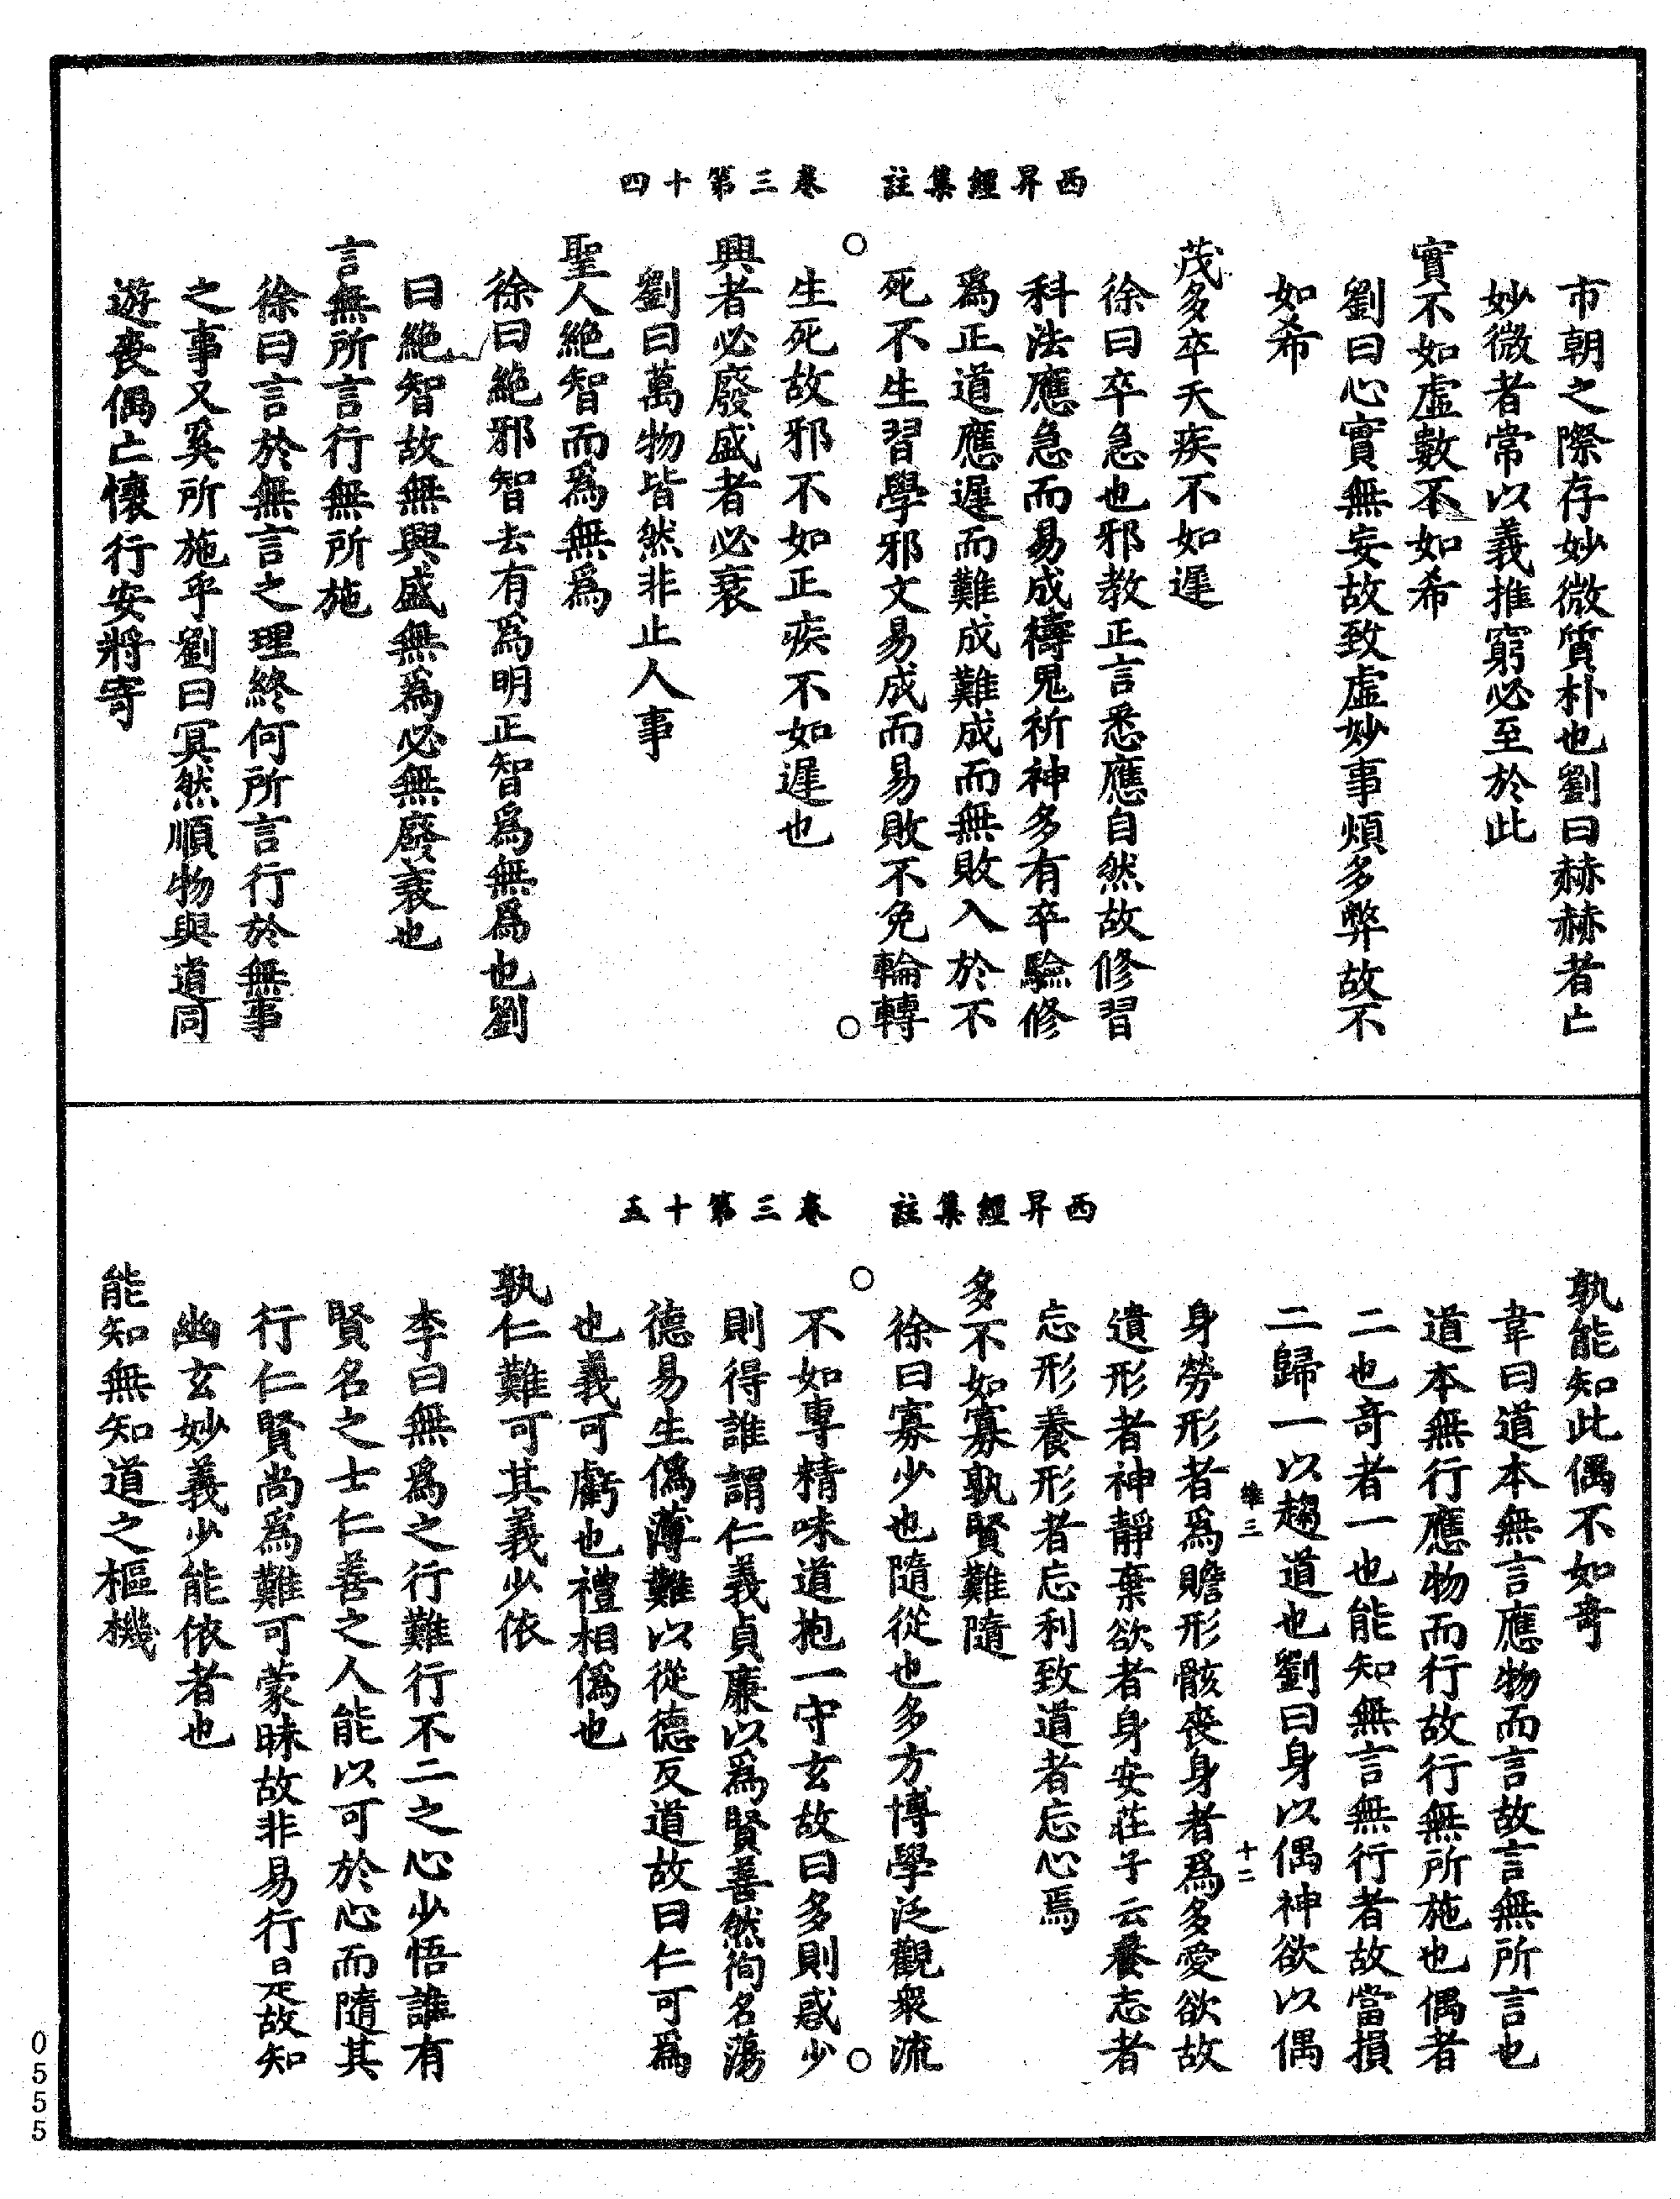 西昇經集註　卷三第十四
市朝之際存妙微質朴也劉曰赫赫者亡
妙微者常以義推窮必至於此
實不如虛數不如希
劉曰心實無妄故致虛妙事煩多弊故不
如希
茂多卒夭疾不如遲
徐曰卒急也邪教正言悉應自然故修習
科法應急而易成禱鬼祈神多有卒驗修
爲正道應遲而難成難成而無敗入於不
死不生習學邪文易成而易敗不免輪轉
生死故邪不如正疾不如遲也
興者必廢盛者必衰
劉曰萬物皆然非止人事
聖人絶智而爲無爲
徐曰絶邪智去有爲明正智爲無爲也劉
曰絶智故無興盛無爲必無廢衰也
言無所言行無所施
徐曰言於無言之理終何所言行於無事
之事又奚所施乎劉曰冥然順物與道同
遊喪偶亡懷行安將寄
西昇經集註　卷三第十五
孰能知此偶不如奇
韋曰道本無言應物而言故言無所言也
道本無行應物而行故行無所施也偶者
二也奇者一也能知無言無行者故當損
二歸一以趨道也劉曰身以偶神欲以偶
維三　十二
身勞形者爲贍形骸喪身者爲多愛欲故
遺形者神靜棄欲者身安莊子云養志者
忘形養形者忘利致道者忘心焉
多不如寡孰賢難隨
徐曰寡少也隨從也多方博學泛觀衆流
不如專精味道抱一守玄故曰多則惑少
則得誰謂仁義貞廉以爲賢善然徇名蕩
德易生僞薄難以從德反道故曰仁可爲
也義可虧也禮相僞也
孰仁難可其義少依
李曰無爲之行難行不二之心少悟誰有
賢名之士仁善之人能以可於心而隨其
行仁賢尚爲難可蒙昧故非易行是故知
幽玄妙義少能依者也
能知無知道之樞機
0555